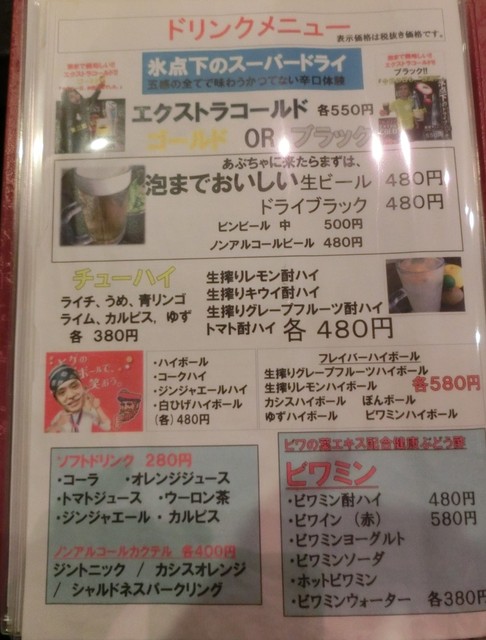 ドリンクメニュー
表示価格は税抜き価格です。
氷点下のスーパードライ
五感の全てで味わうかつてない辛口体験
エクストラコールド 各550円
ゴールド OR ブラック
ブラック!!
あぶちゃに来たらまずは、
泡までおいしい生ビール 480円
ドライブラック 480円
ビンビール 中 500円
ノンアルコールビール 480円
チューハイ
ライチ、うめ、青リンゴ
ライム、カルピス、ゆず
各 380円
生搾りレモン酎ハイ
生搾りキウイ酎ハイ
生搾りグレープフルーツ酎ハイ
トマト酎ハイ 各 480円
・ハイボール
・コークハイ
・ジンジャエールハイ
・白ひげハイボール
(各)480円
フレイバーハイボール
生搾りグレープフルーツハイボール
生搾りレモンハイボール 各580円
カシスハイボール ぽんボール
ゆずハイボール ビワミンハイボール
ソフトドリンク 280円
・コーラ ・オレンジジュース
・トマトジュース ・ウーロン茶
・ジンジャエール・カルピス
ノンアルコールカクテル 各400円
ジントニック / カシスオレンジ
/ シャルドネスパークリング
ビワの葉エキス配合健康ぶどう酢
ビワミン
・ビワミン酎ハイ 480円
・ビワイン (赤) 580円
・ビワミンヨーグルト
・ビワミンソーダ
・ホットビワミン
・ビワミンウォーター 各380円